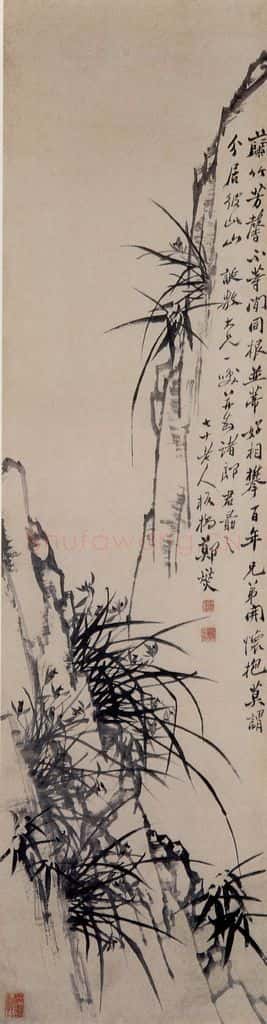 蘭竹芳馨不等閒同根並蒂好相攀百年兄弟開懷抱莫謂
分居彼此山 敷大兄一 諸郎君
七十老人板橋鄭燮